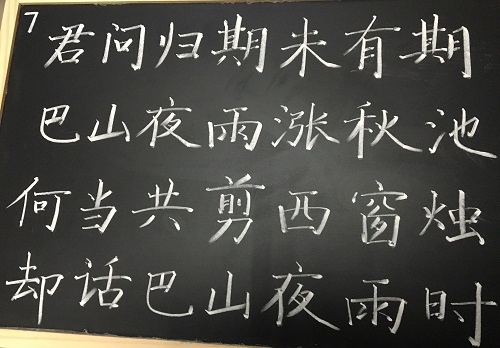 7
君问归期未有期
巴山夜雨涨秋池
何当共剪西窗烛
却话巴山夜雨时